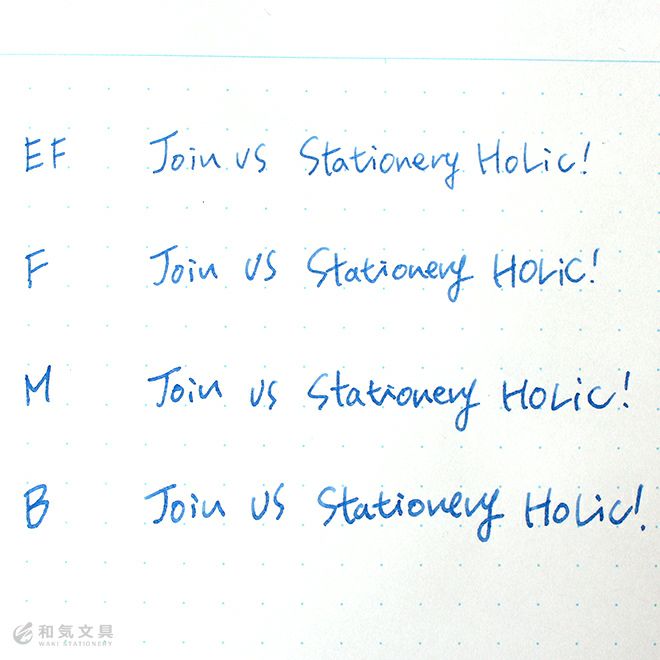 EF Join us Stationery Holic!
F Join us Stationery Holic!
M Join us Stationery Holic!
B Join us Stationery Holic!
和気文具
WAKI STATIONERY